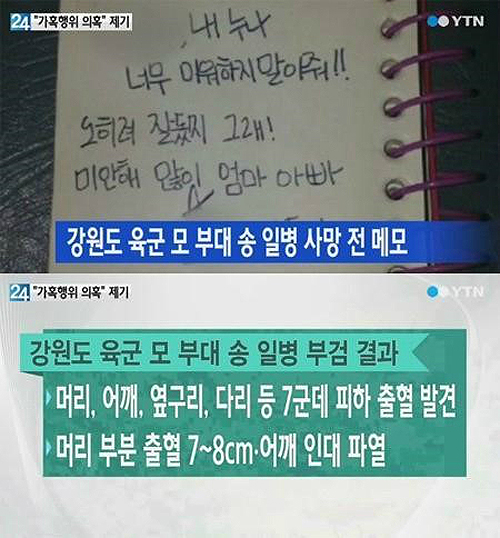 24 "가혹행위 의혹" 제기
YTN
내 누나
너무 미워하지말아줘!!
오히려 잘됐지 그래!
미안해 많이 엄마 아빠
강원도 육군 모 부대 송 일병 사망 전 메모
24 "가혹행위 의혹" 제기
YTN
강원도 육군 모 부대 송 일병 부검 결과
머리, 어깨, 옆구리, 다리 등 7군데 피하 출혈 발견
머리 부분 출혈 7~8cm·어깨 인대 파열